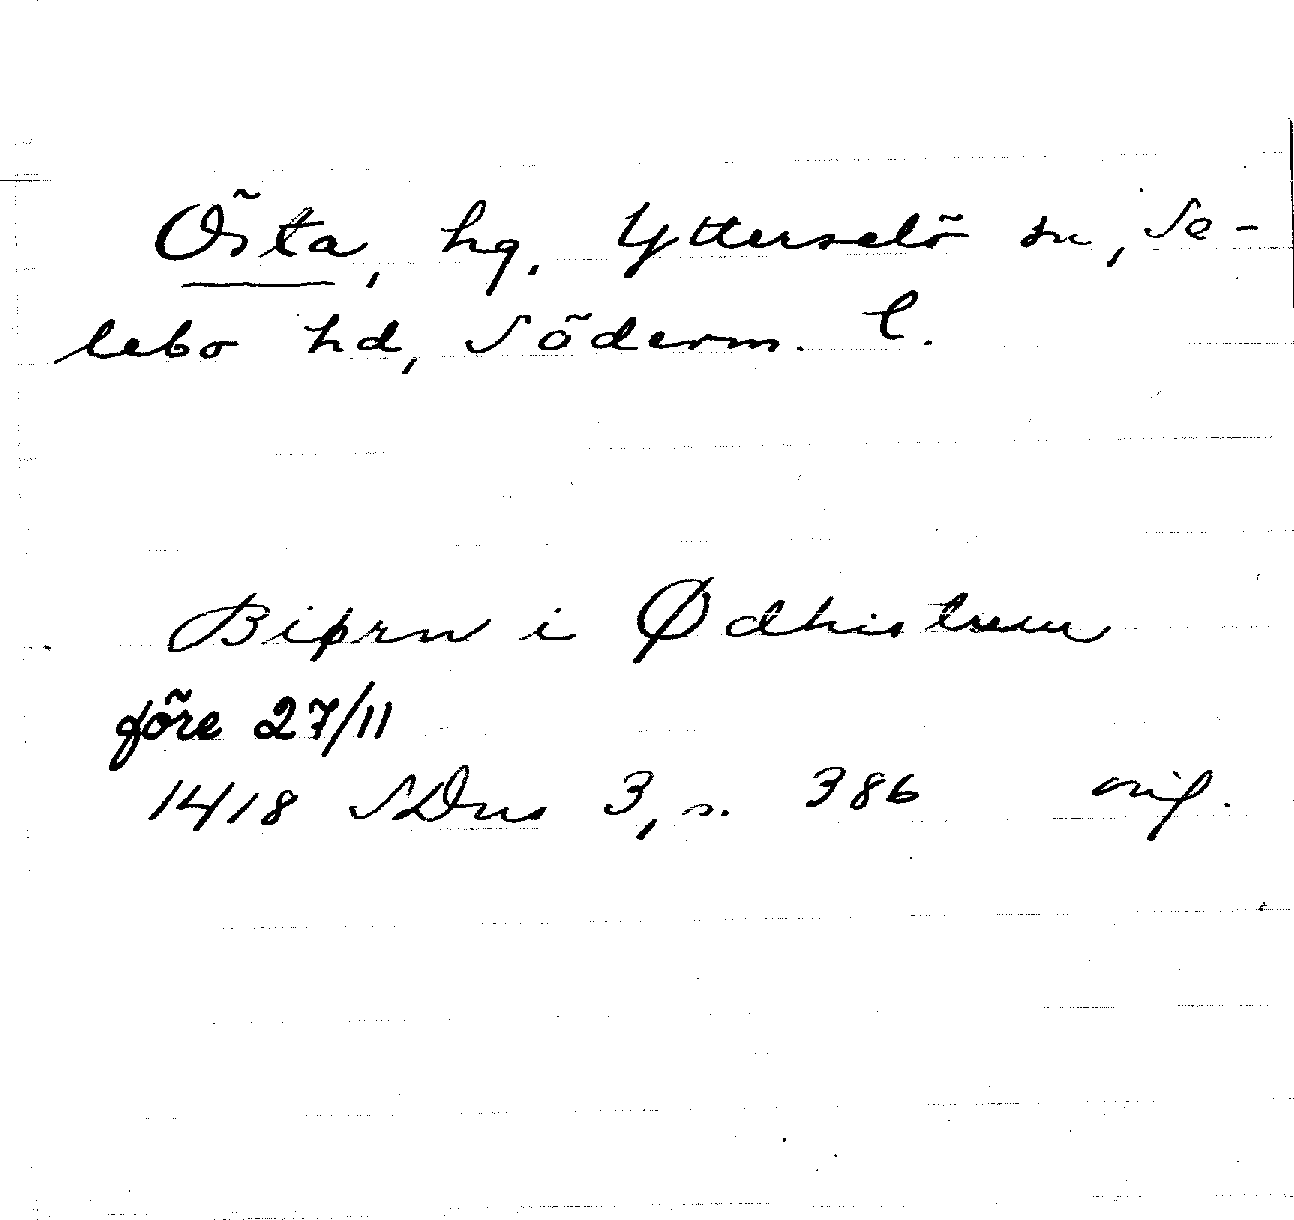 Östa, hg. Ytterselö sn, Se-
lebo hd, Söderm. l.
Biørn i Ødhistum
före 27/11
1418 SDns 3, s. 386 orig.